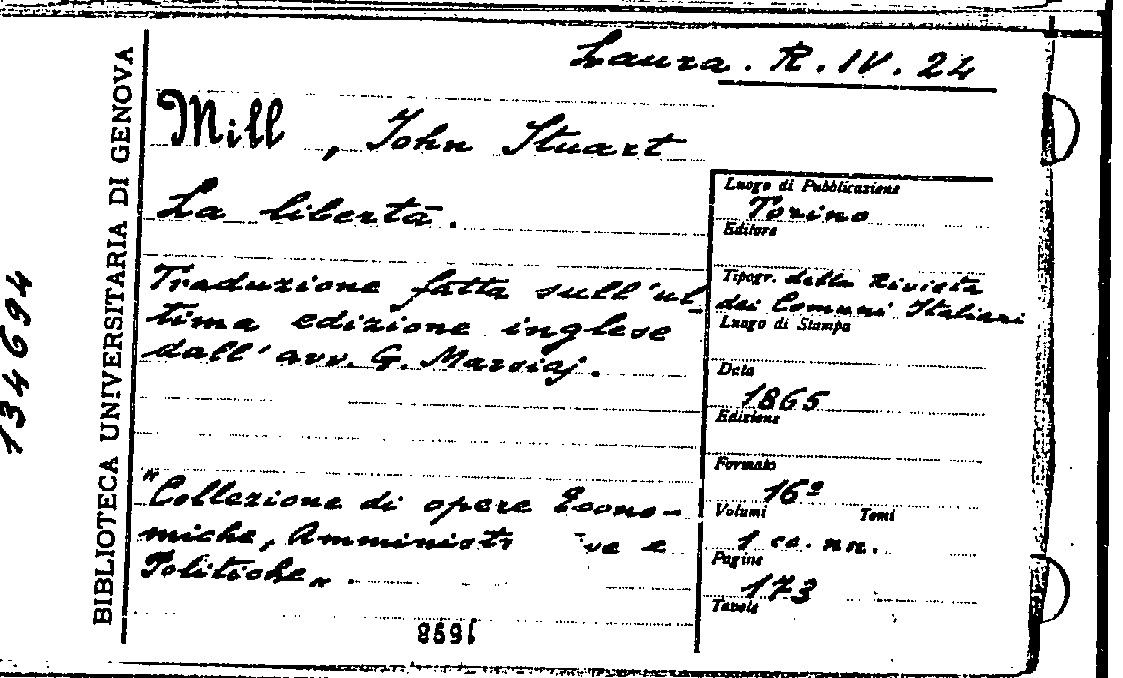 Laura. R. IV. 24
BIBLIOTECA UNIVERSITARIA DI GENOVA
134694
Mill, John Stuart
La libertà.
Traduzione fatta sull'ul-
tima edizione inglese
dall'avv. G. Marsiaj.
"Collezione di opere Econo-
miche, Amministr ve e
Politiche".
1698
Luogo di Pubblicazione
Torino
Editore
Tipogr. della Rivista
dei Comuni Italiani
Luogo di Stampa
Data
1865
Edizione
Formato
16º
Volumi Tomi
1 ca. nn.
Pagine
173
Tavole